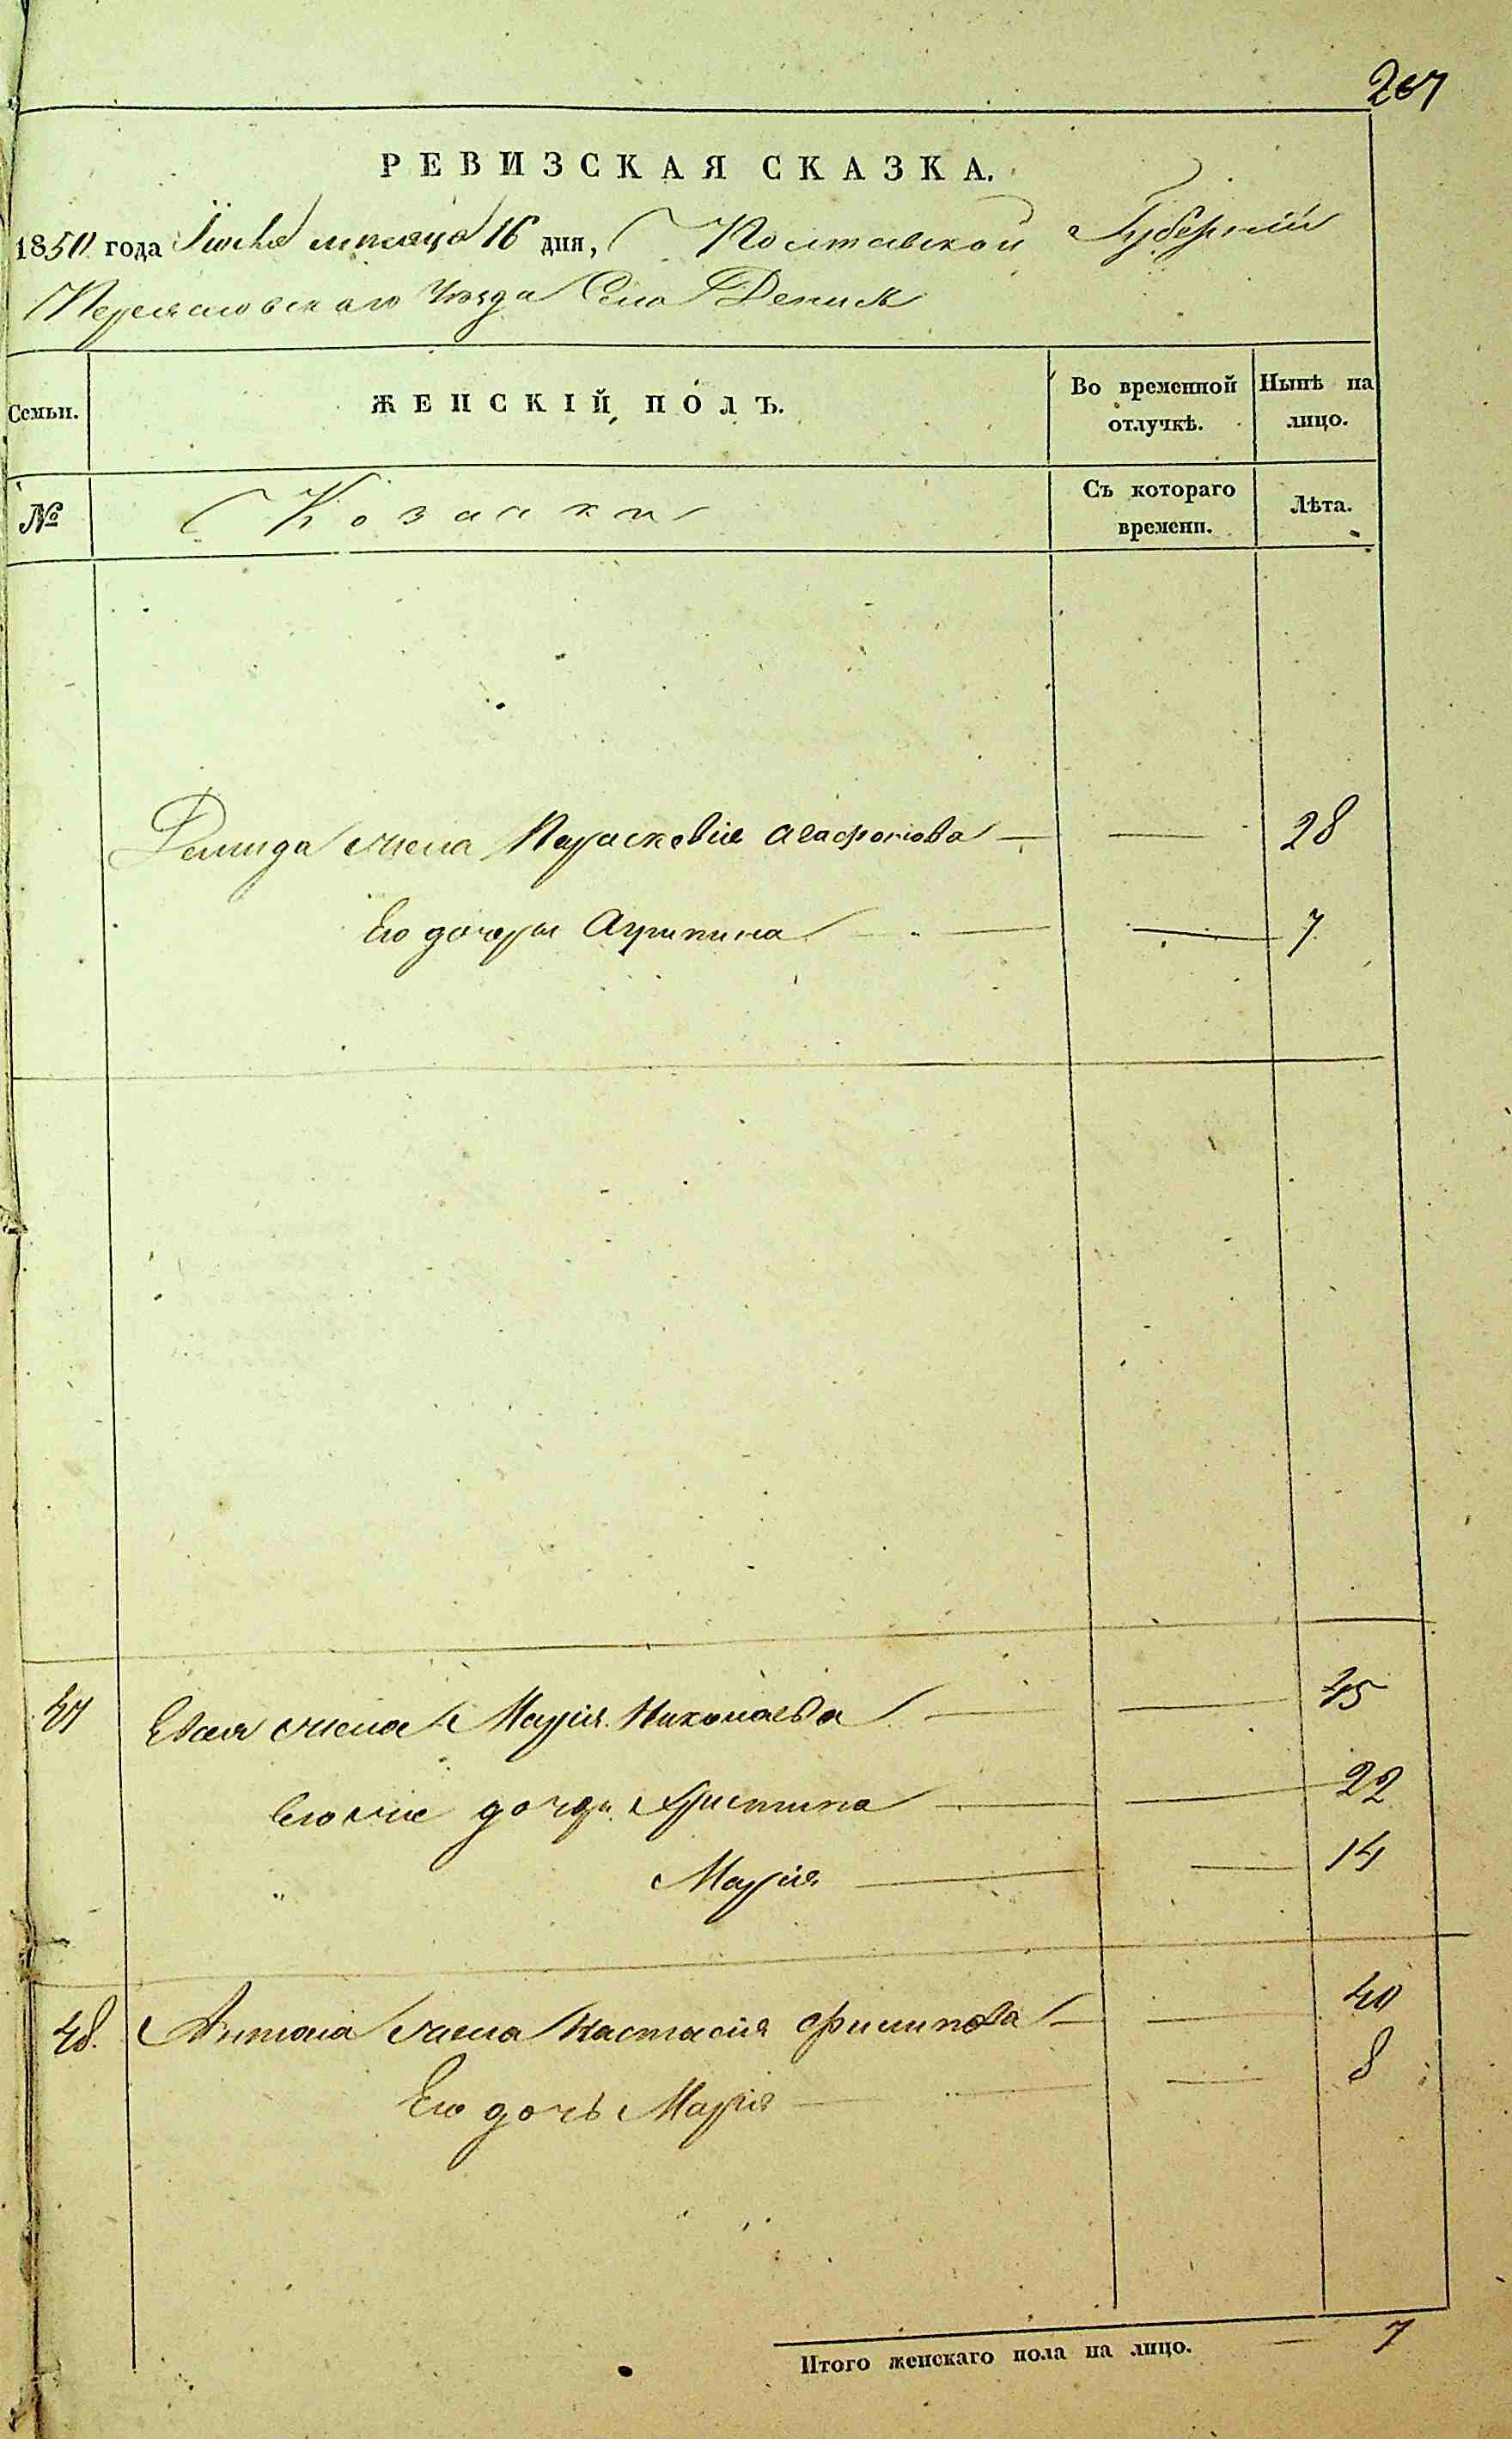 267
РЕВИЗСКАЯ СКАЗКА.
1850 года Июня месяца 16 дня, Полтавской Губернии
Переясловского Уезда Села Денис
Семьи. ЖЕНСКІЙ ПОЛЪ. Во временной отлучкѣ. Нынѣ на лицо.
№ Козачки Съ котораго времени. Лѣта.
Демида жена Параскевія Агафонова — — 28
Его дочеры Агрипина — — 7
47 жена Марія Николаева — — 45
Его же дочери Христина — — 22
" Марія — — 14
48. Антона жена Настасія Филипова — — 40
Его дочь Марія — — 8
Итого женскаго пола на лицо. — 7